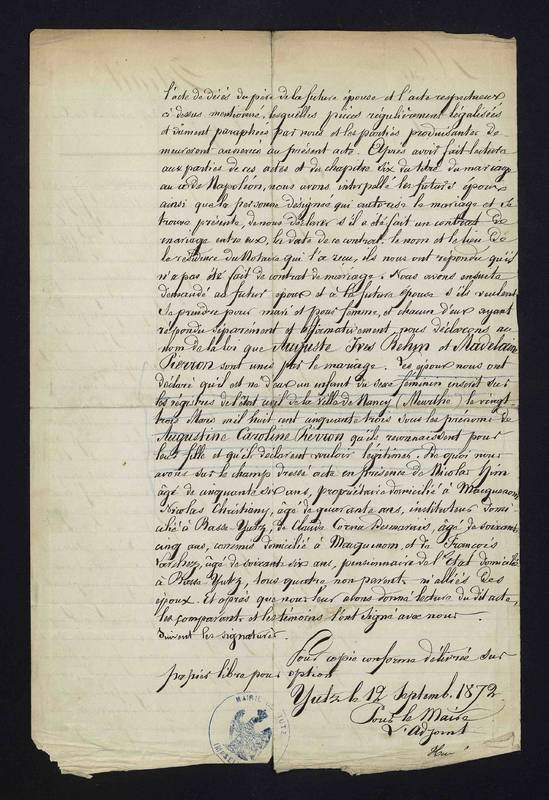 l'acte de décès du père de la future épouse et l'acte respectueux
ci dessus mentionné, lesquelles pièces régulièrement légalisées
et dûment paraphées par nous et les parties produisantes de-
meureront annexées au présent acte. Après avoir fait lecture
aux parties de ces actes et du chapitre six du titre du mariage
au code Napoléon, nous avons interpellé les futurs époux
ainsi que la personne désignée qui autorise le mariage et se
trouve présente, de nous déclarer s'il a été fait un contrat de
mariage entre eux, la date de ce contrat, le nom et le lieu de
la résidence du Notaire qui l'a reçu, ils nous ont répondu qu'il
n'a pas été fait de contrat de mariage. Nous avons ensuite
demandé au futur époux et à la future épouse s'ils veulent
se prendre pour mari et pour femme, et chacun d'eux ayant
répondu séparément et affirmativement, nous déclarons au
nom de la loi que Auguste Ives Rehm et Madelaine
Pierron sont unis par le mariage. Les époux nous ont
déclaré qu'il est né d'eux un enfant du sexe féminin inscrit sur
les régistres de l'état civil de la ville de Nancy (Meurthe) le vingt
trois Mars mil huit cent cinquante trois sous les prénoms de
Augustine Caroline Pierron qu'ils reconnaissent pour
leur fille et qu'ils déclarent vouloir légitimer. De quoi nous
avons sur le champ dressé acte en présence de Nicolas
âgé de cinquante six ans, propriétaire domicilié à Macquenom
Nicolas Christiany, âgé de quarante ans, instituteur domi-
cilié à Basse Yutz, de Claude Desmarais, âgé de soixante
cinq ans, domicilié à Macquenom, et de François
âgé de soixante six ans, pensionnaire de l'Etat domicilié
à Basse Yutz, tous quatre non parents ni alliés des
époux. Et après que nous leur avons donné lecture du dit acte,
les comparants et les témoins l'ont signé avec nous.
Suivent les signatures.
Pour copie conforme délivrée sur
papier libre pour option
Yutz le 12 Septemb. 1872
Pour le Maire
L'Adjoint
MAIRIE DE YUTZ